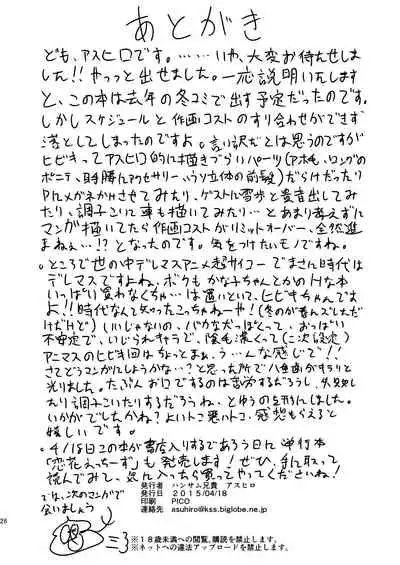 あとがき
ども、アスヒロです。……いや、大変お待たせしま
した!! やっっと出せました。一応説明いたします
と、この本は去年の冬コミで出す予定だったのです。
しかしスケジュールと作画コストのすり合わせができず
落としてしまったのですよ。言い訳だとは思うのですが
ヒビキってアスヒロ的に描きづらいパーツ(アホ毛、ロングの
ポニテ、
アクセサリー、
立体の前髪)だらけだったり
Pにメガネかけさせてみたり、ゲストに雪歩と
出してみ
たり、調子こいて車も描いてみたり…とあまり考えずに
マンガ描いてたら作画コストがリミットオーバー、全然進
まねぇ…!? となったのです。気をつけたいモノですね。
。ところで世の中デレマスアニメ超サイコーでまさに時代は
デレマスですよね、ボクも
いっぱい買わなくちゃ…は置いといて、ヒビキちゃんです
よ!! 時代なんて知ったこっちゃねーや!(冬のが
だけど)いいじゃないの、バカなだっぽくって、おっぱい
不安定で、いじられキャラで、陰も濃くって(二次設定)
アニマスのヒビキ回はちっとまぁ、う…んな感じで!!
さてどうマンガにしようかな…?と思った所で八重歯がキラリと
光りました。たぶんお口でするのは苦労するだろうし、
たり調子こいたりするだろうね、とゆうの
にしました。
いかがでしたかね?よいトコ悪いトコ、感想もらえると
嬉しいです。
。4/18日この本が書店入りするであろう日に単行本
「恋花えっちーず」も発売します!ぜひ、手に取って
読んでみて、気に入ったら買ってやってくださいね!
では、次のマンガで
会いましょう
発行者 ハンサム兄貴 アスヒロ
発行日 2015/04/18
印刷 PICO
連絡先 asuhiro@kss.biglobe.ne.jp
※18歳未満への閲覧,購読を禁止します。
※ネットへの違法アップロードを禁止します。
26